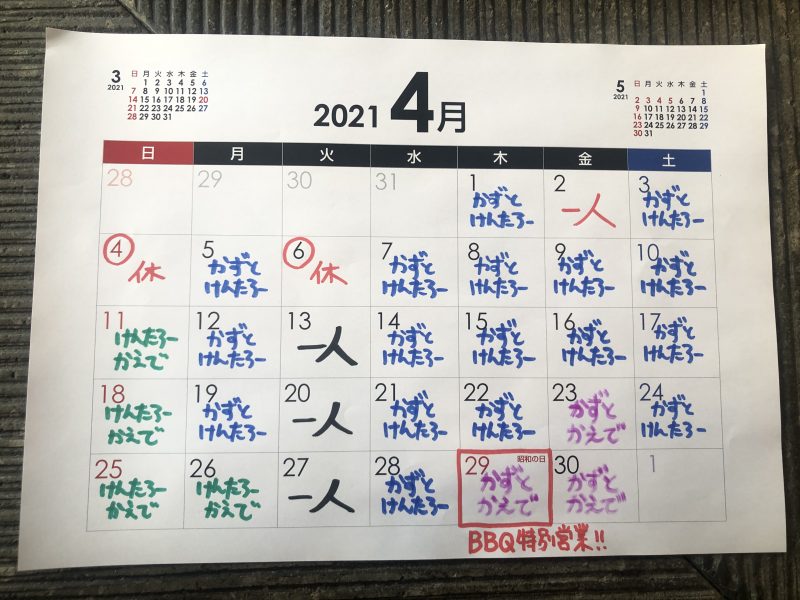 3
2021
日 月 火 水 木 金 土
1 2 3 4 5 6
7 8 9 10 11 12 13
14 15 16 17 18 19 20
21 22 23 24 25 26 27
28 29 30 31
2021 4月
5
2021
日 月 火 水 木 金 土
1
2 3 4 5 6 7 8
9 10 11 12 13 14 15
16 17 18 19 20 21 22
23 24 25 26 27 28 29
30 31
日 月 火 水 木 金 土
28 29 30 31 1 2 3
かずと 一人 かずと
けんたろー けんたろー
4 5 6 7 8 9 10
休 かずと 休 かずと かずと かずと かずと
けんたろー けんたろー けんたろー けんたろー けんたろー
11 12 13 14 15 16 17
けんたろー かずと 一人 かずと かずと かずと かずと
かえで けんたろー けんたろー けんたろー けんたろー けんたろー
18 19 20 21 22 23 24
けんたろー かずと 一人 かずと かずと かずと かずと
かえで けんたろー けんたろー けんたろー かえで けんたろー
25 26 27 28 29 昭和の日 30 1
けんたろー けんたろー 一人 かずと かずと かずと
かえで かえで けんたろー かえで かえで
BBQ特別営業!!